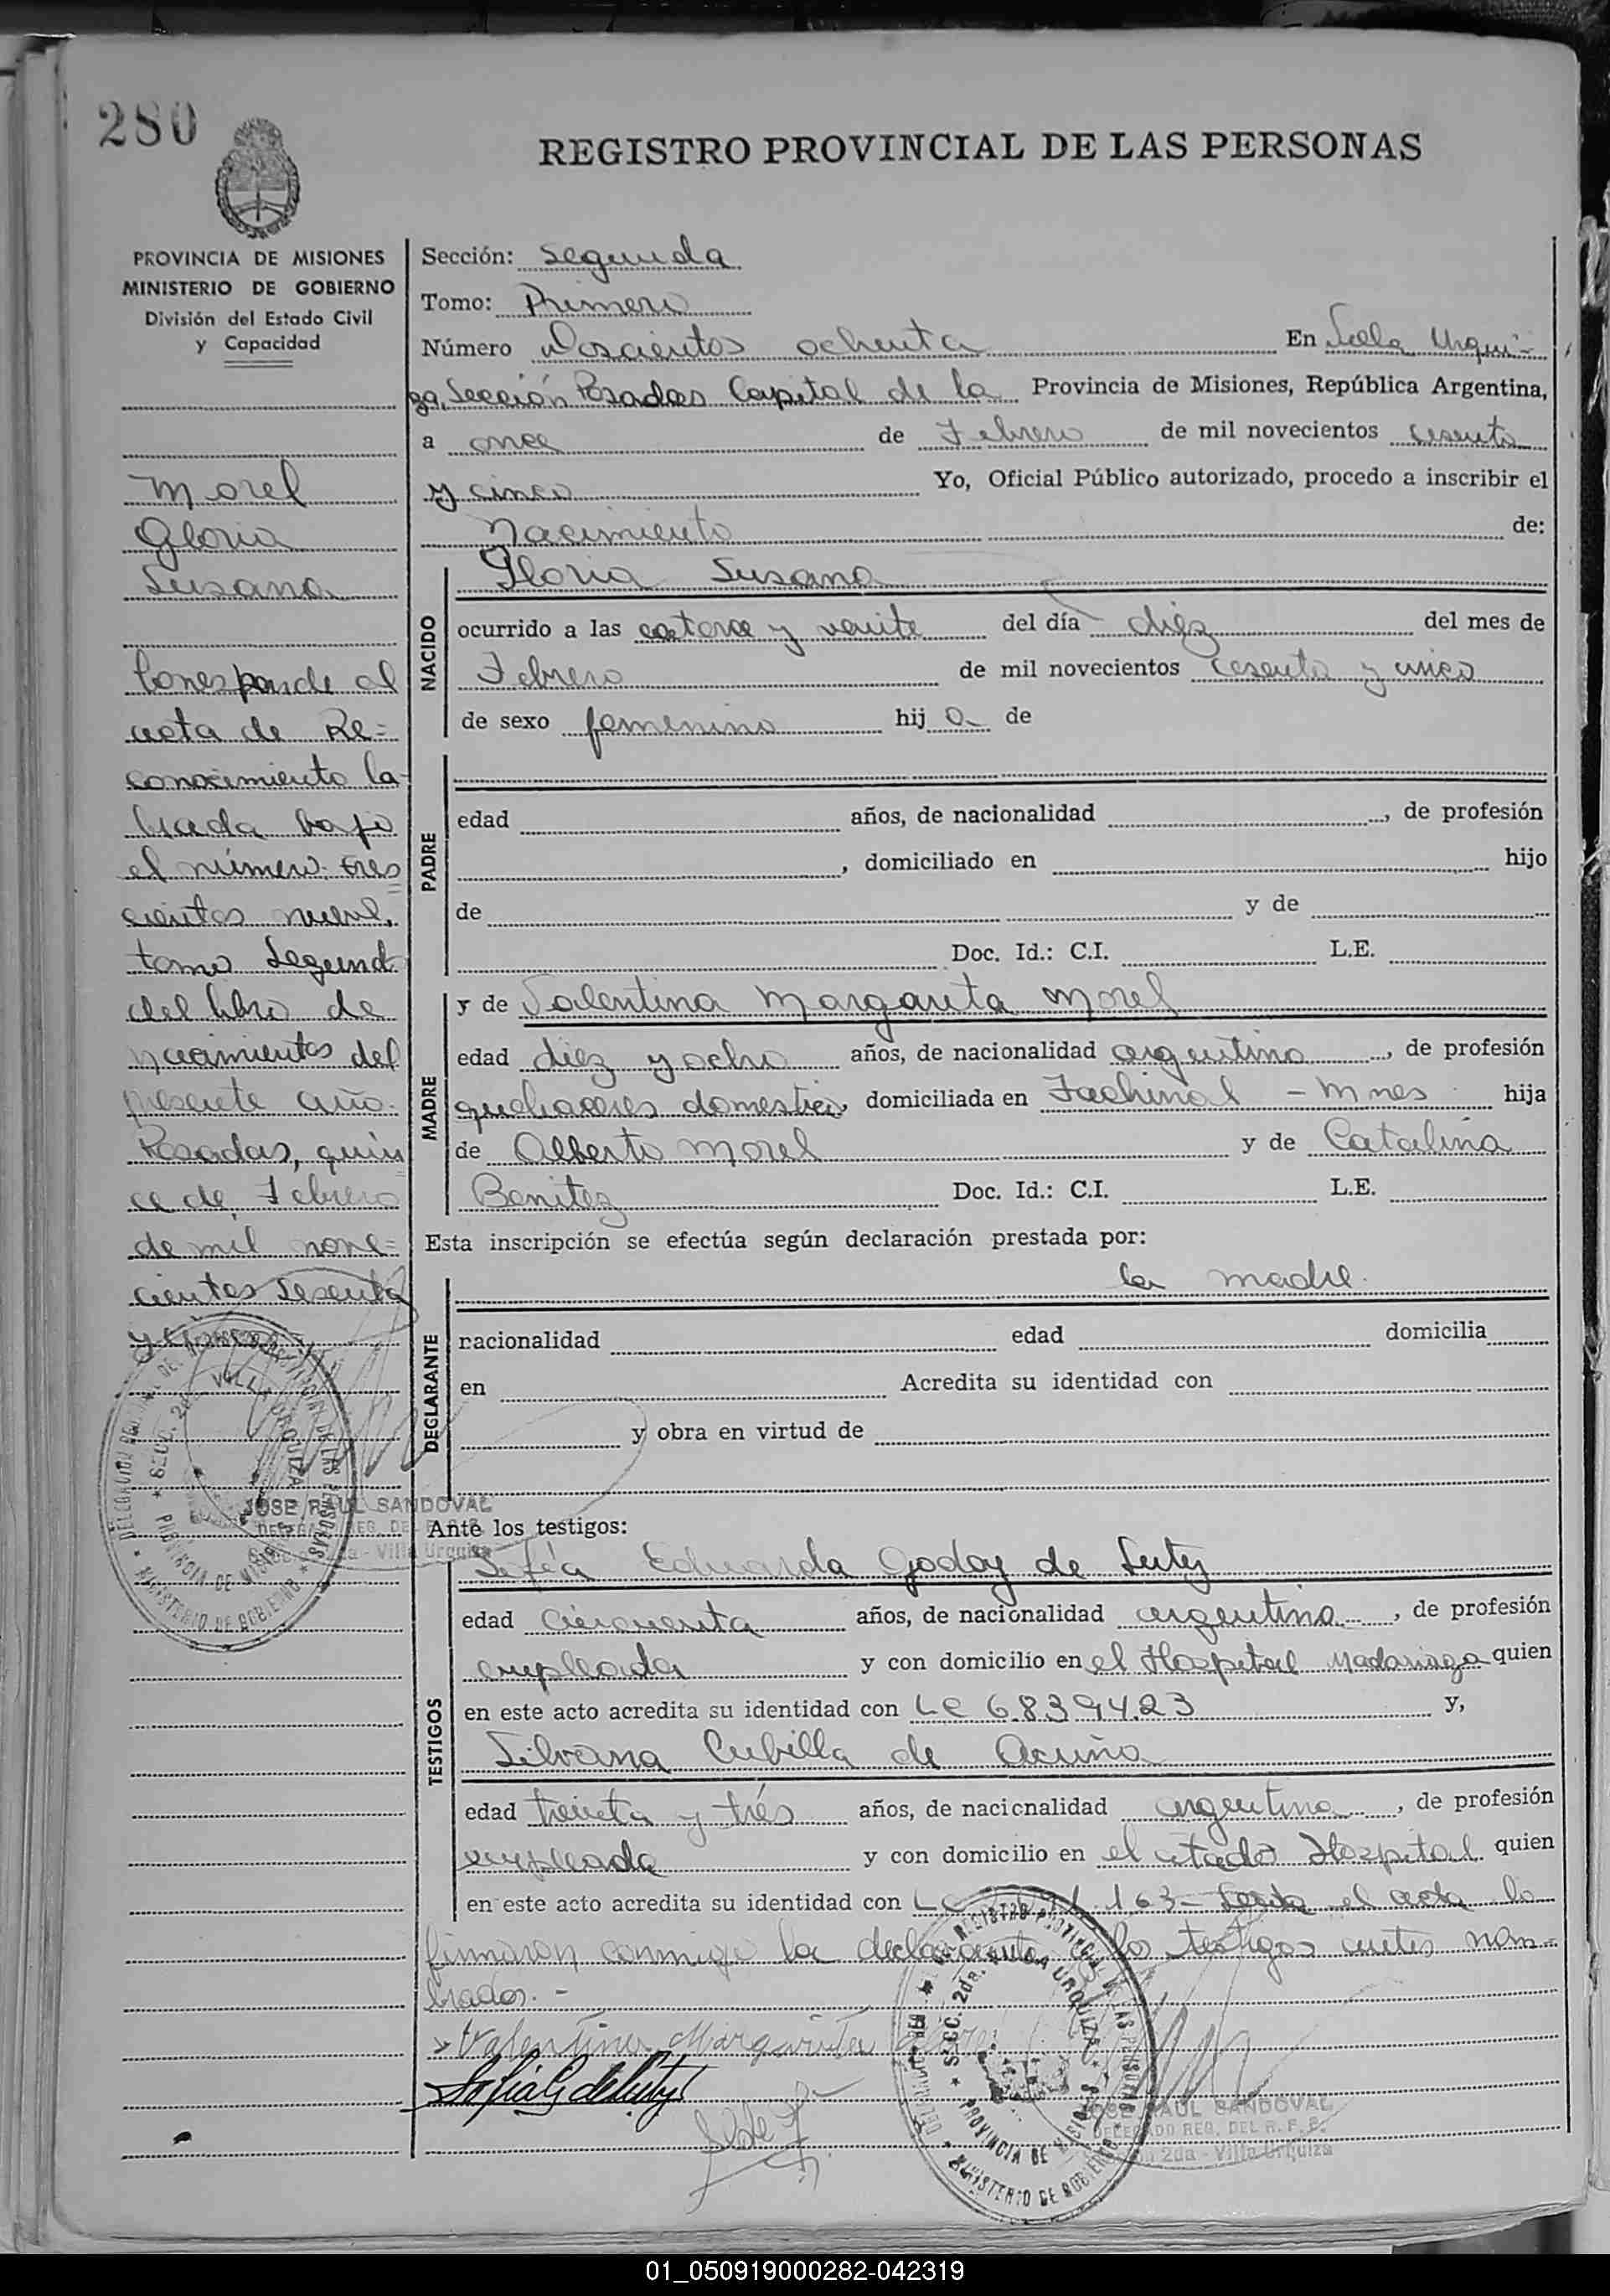 280
REGISTRO PROVINCIAL DE LAS PERSONAS
PROVINCIA DE MISIONES
MINISTERIO DE GOBIERNO
División del Estado Civil
y Capacidad
Morel
Gloria
Susana
Corresponde al
acta de Re=
conocimiento la-
brada bajo
el número tres
cientos nueve,
tomo Segundo
del libro de
nacimientos del
presente año.
Posadas, quin
ce de Febrero
de mil nove=
cientos sesenta
y cinco
JOSE RAUL SANDOVAL
Sección: Segunda
Tomo: Primero
Número Doscientos ochenta En Villa Urqui-
za, Sección Posadas Capital de la Provincia de Misiones, República Argentina,
a once de Febrero de mil novecientos cesenta
y cinco Yo, Oficial Público autorizado, procedo a inscribir el
Nacimiento de:
NACIDO
Gloria Susana
ocurrido a las catorce y veinte del día diez del mes de
Febrero de mil novecientos cesenta y cinco
de sexo femenino hij a de
PADRE
edad años, de nacionalidad , de profesión
, domiciliado en hijo
de y de
Doc. Id.: C.I. L.E.
MADRE
y de Valentina Margarita Morel
edad diez y ocho años, de nacionalidad argentina , de profesión
quehaceres domesticos, domiciliada en Fachinal - Mnes hija
de Alberto Morel y de Catalina
Benitez Doc. Id.: C.I. L.E.
Esta inscripción se efectúa según declaración prestada por:
la madre.
DECLARANTE
nacionalidad edad domicilia
en Acredita su identidad con
y obra en virtud de
Ante los testigos:
TESTIGOS
Sofía Eduarda Godoy de Luty
edad cincuenta años, de nacionalidad argentina , de profesión
empleada y con domicilio en el Hospital Madariaga quien
en este acto acredita su identidad con LC 6839423 y,
Silvana Cubilla de Acuña
edad treinta y trés años, de nacionalidad argentina , de profesión
empleada y con domicilio en el citado Hospital quien
en este acto acredita su identidad con LC 163 - Leida el acta lo
firmaron conmigo la declarante y los testigos antes nom-
brados. -
Valentina Margarita
Sofia G de Luty
SECC. 2da. VILLA URQUIZA
PROVINCIA DE MISIONES
MINISTERIO DE GOBIERNO
JOSE RAUL SANDOVAL
DELEGADO REG. DEL R. P. P.
2da - Villa Urquiza
01_050919000282-042319